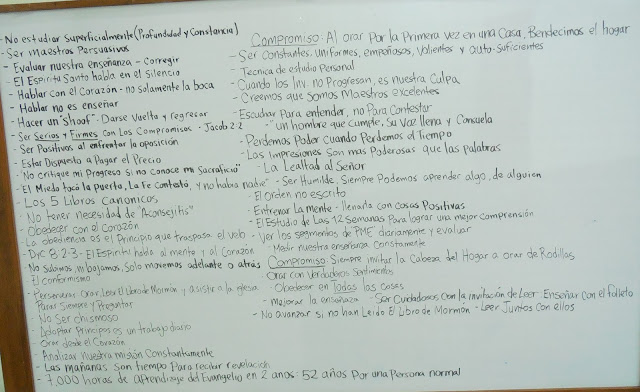 -No estudiar superficialmente (Profundidad y Constancia)
-Ser Maestros Persuasivos
- Evaluar nuestra enseñanza - Corregir
- El Espiritu Santo habla en el Silencio
- Hablar con el Corazón - no solamente la boca
- Hablar no es enseñar
- Hacer un "shoof" - Darse Vuelta y regresar
- Ser Serios y Firmes con Los Compromisos - Jacob 2:2
- Ser Positivos al enfrentar la oposición
- Estar Dispuesto a Pagar el Precio
- "No critique mi Progreso si no Conoce mi Sacrificio"
- El Miedo tocó la puerta, La Fe Contestó, y no había nadie"
- Los 5 Libros Canonicos
"No tener necesidad de Aconsejitis"
Obedecer con el Corazón
La obediencia es el Principio que traspasa el velo
- DyC 8:2-3 - El Espiritu habla al mente y al Corazón
No subimos, ni bajamos, Solo movemos adelante o atrás
El conformismo
- Perseverar: Orar, Leer El Libro de Mormón y asistir a la iglesia
Parar Siempre y Preguntar
- No Ser Chismoso
- Adoptar Principios es un trabajo diario
- Orar desde el Corazón
- Analizar nuestra misión Constantemente
- Las mañanas son tiempo Para recibir revelación
- 7,000 horas de aprendizaje del Evangelio en 2 años: 52 años Por una Persona normal
Compromiso: Al orar Por la Primera vez en una Casa, Bendecimos el hogar
- Ser Constantes, uniformes, empeñosos, Valientes y auto-suficientes
- Tecnica de estudio Personal
- Cuando los Inv. no Progresan, es nuestra Culpa
- Creemos que somos Maestros excelentes
- Escuchar Para entender, no Para Contestar
- "un hombre que Cumple, su Voz llena y Consuela
- Perdemos Poder cuando Perdemos el Tiempo
- Las Impresiones son mas Poderosas que las palabras
- La Lealtad al Señor
- Ser Humilde. Siempre Podemos aprender algo, de alguien
- El Orden no escrito
- Entrenar La mente - llenarla con cosas Positivas
- El Estudio de Las 12 Semanas Para lograr una mejor Comprensión
- Ver los segmentos de PME diariamente y evaluar
- Medir nuestra enseñanza Constamente
Compromiso: Siempre invitar la Cabeza del Hogar a orar de Rodillas
- Orar con Verdaderos Sentimientos
- Obedecer en Todas las Cosas
- Mejorar la enseñanza - Ser Cuidadosos con la invitación de Leer: Enseñar con el folleto
- No avanzar si no han Leido El Libro de Mormón - Leer Juntos con ellos